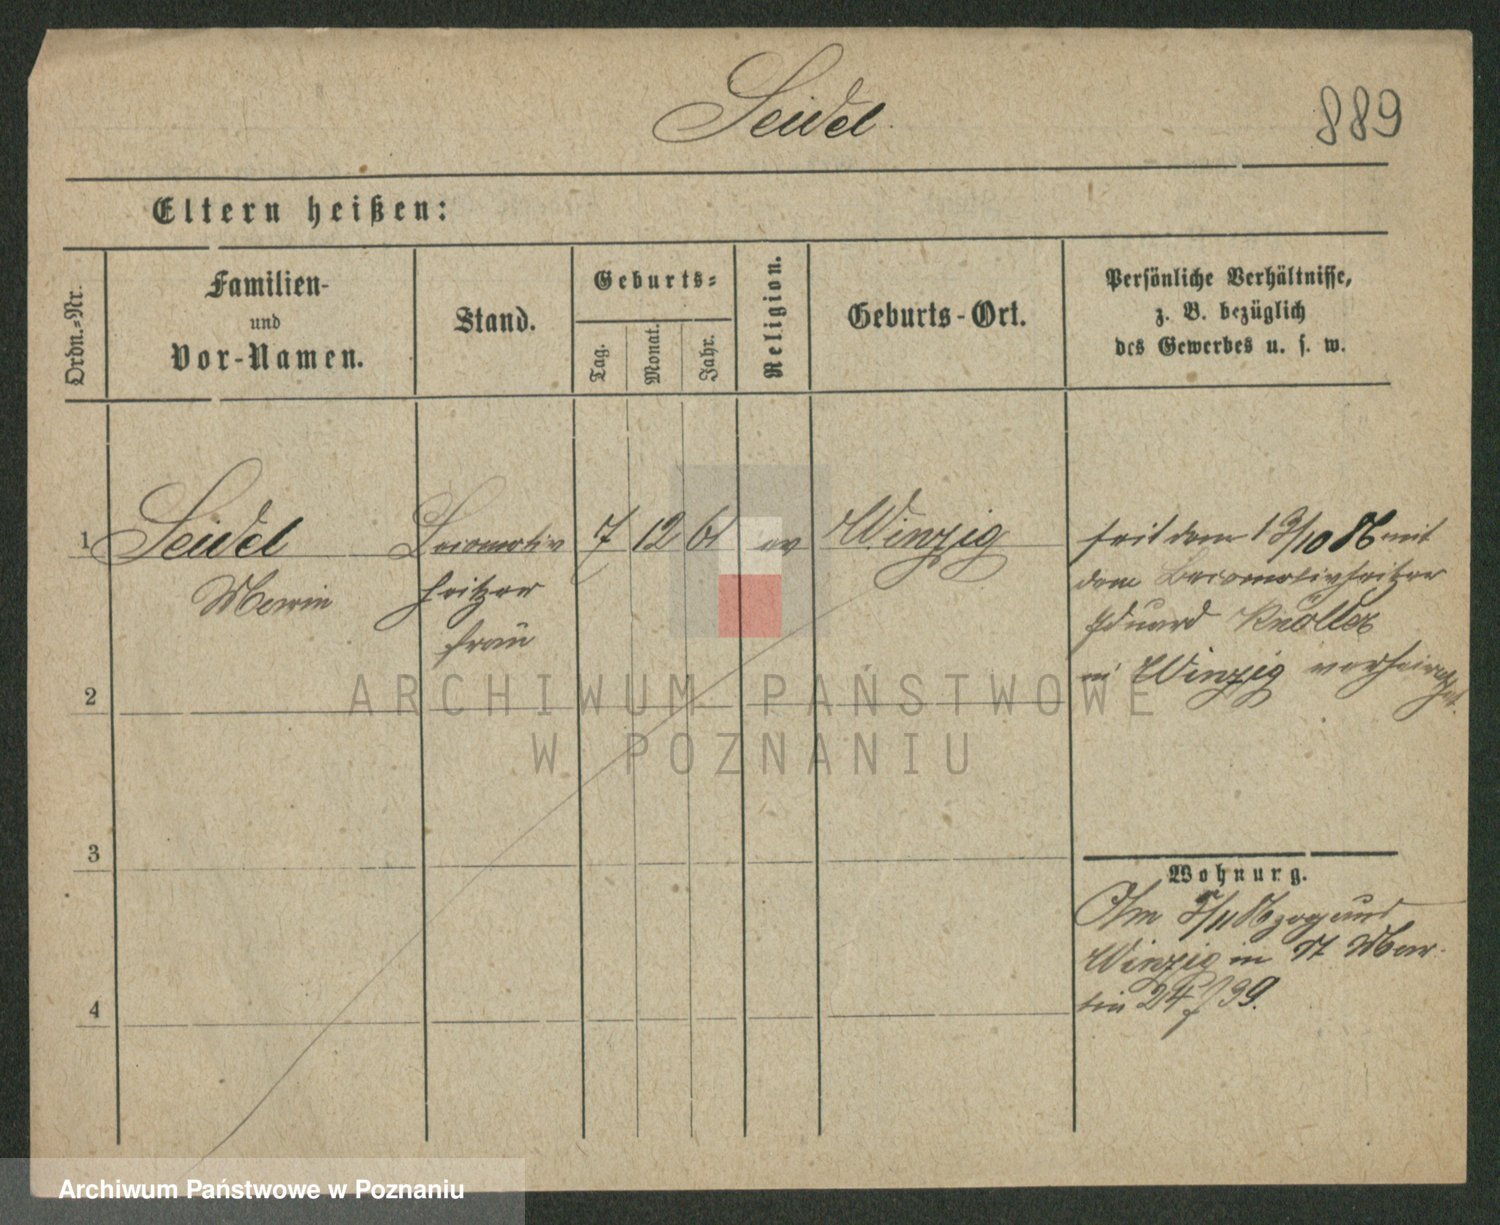 Seidel
889
Eltern heißen:
Ordn.-Nr.
Familien-
und
Vor-Namen.
Stand.
Geburts-
Tag.
Monat.
Jahr.
Religion.
Geburts-Ort.
Persönliche Verhältnisse,
z. B. bezüglich
des Gewerbes u. s. w.
1 Seidel Locomotiv 7 12 61 ev Winzig seit dem 13/10 86 mit
Marie heitzer dem Locomotivheitzer
frau Eduard
in Winzig verheirathet.
2
3
4
Wohnung.
Am 5/11 86 zog aus
Winzig in St Mar-
tin 24 / 39.
ARCHIWUM PAŃSTWOWE
W POZNANIU
Archiwum Państwowe w Poznaniu